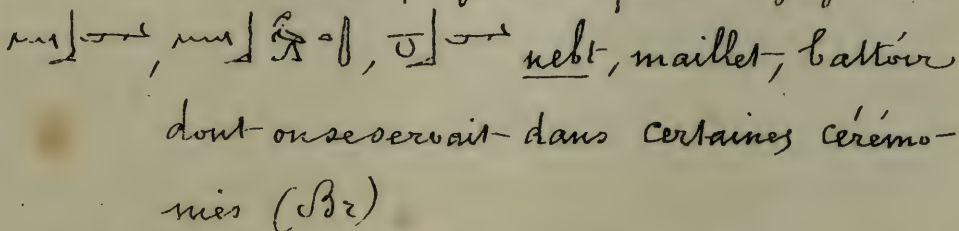 nebt, maillet, battoir
dont on se servait dans certaines cérémo-
nies (Br)